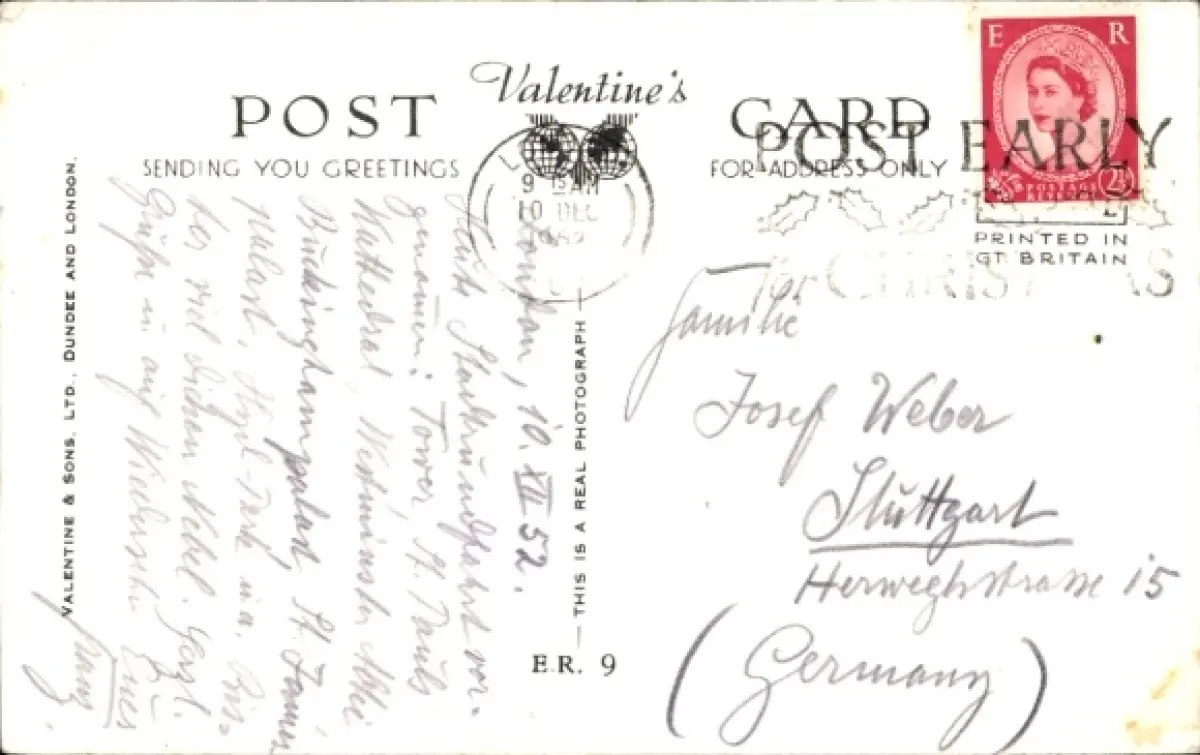 Valentine's
POST CARD
SENDING YOU GREETINGS
FOR ADDRESS ONLY
E R
2½
POSTAGE
REVENUE
POST EARLY
for CHRISTMAS
9 15 AM
10 DEC
PRINTED IN
GT. BRITAIN
London, 10. XII 52.
Heute Stadtrundfahrt vor-
genommen: Tower, St. Pauls
Kathedral, Westminster Abbei
Buckinghampalast, St. James
palast, Hyd-Park u.a. Bis-
her viel dichten Nebel. Herzl.
Grüße u. auf Wiedersehn Eures
Franz.
Familie
Josef Weber
Stuttgart
Herweghstrasse 15
(Germany)
THIS IS A REAL PHOTOGRAPH
E.R. 9
VALENTINE & SONS, LTD., DUNDEE AND LONDON.